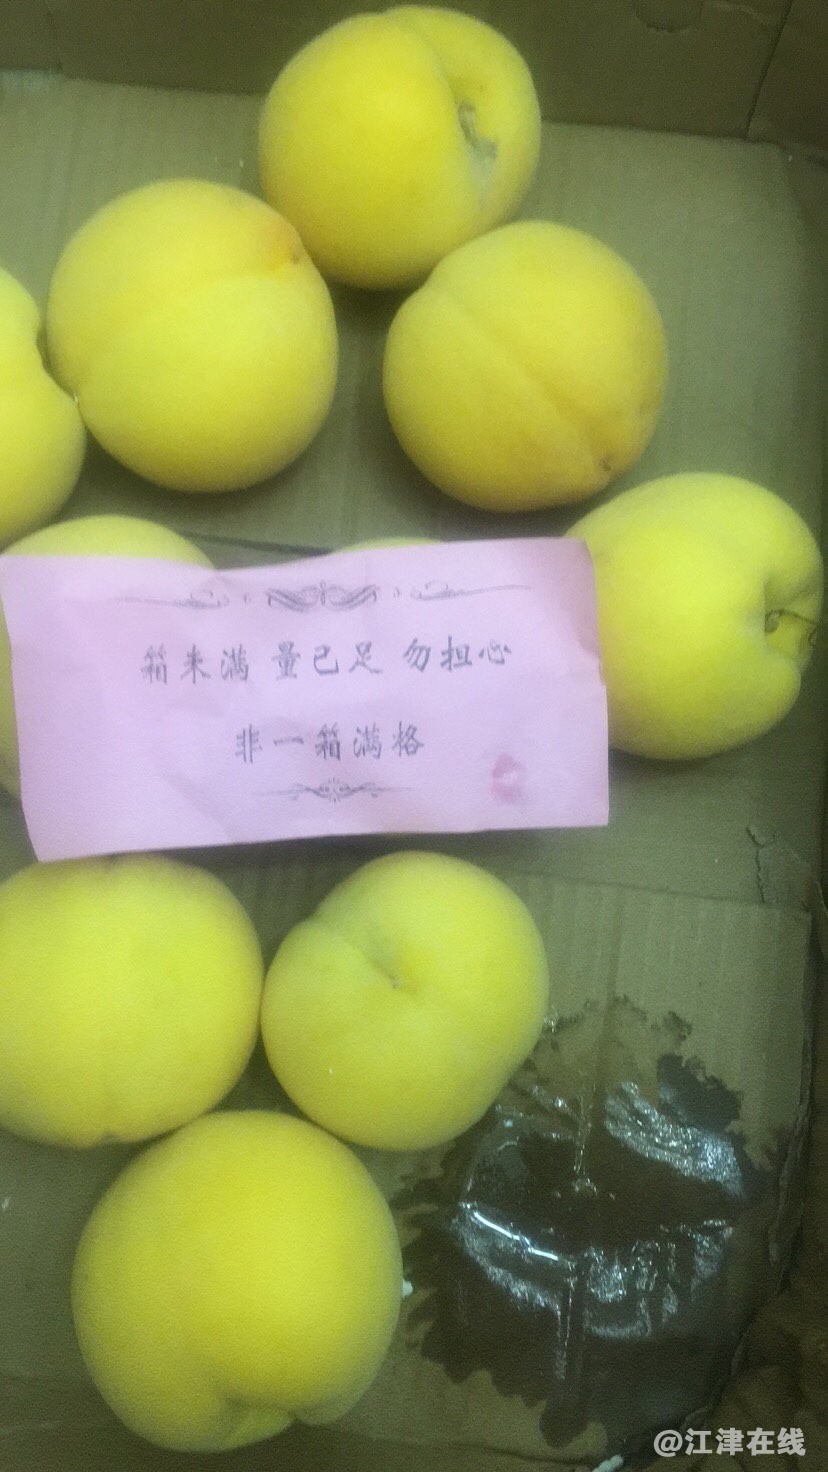 箱未满 量已足 勿担心
非一箱满格
@江津在线